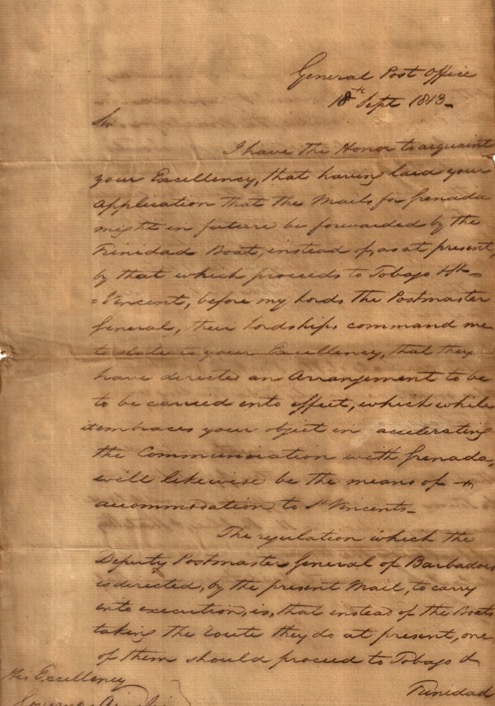 General Post Office
18th Sept 1813
Sir
I have the Honor to acquaint
your Excellency, that having laid your
Application that the Mails for Grenada
might in future be forwarded by the
Trinidad Boat, instead of, as at present,
by that which proceeds to Tobago & St
=Vincent, before my Lords the Postmaster
General, their Lordships command me
to state to your Excellency, that they
have directed an Arrangement to be
to be carried into effect, which while
it embraces your object in accelerating
the Communication with Grenada,
will likewise be the means of
accommodation to St Vincents_
The regulation which the
Deputy Postmaster General of Barbadoes
is directed, by the present Mail, to carry
into execution, is, that instead of the Boats
taking the route they do at present, one
of them should proceed to Tobago &
Trinidad
His Excellency
Governor